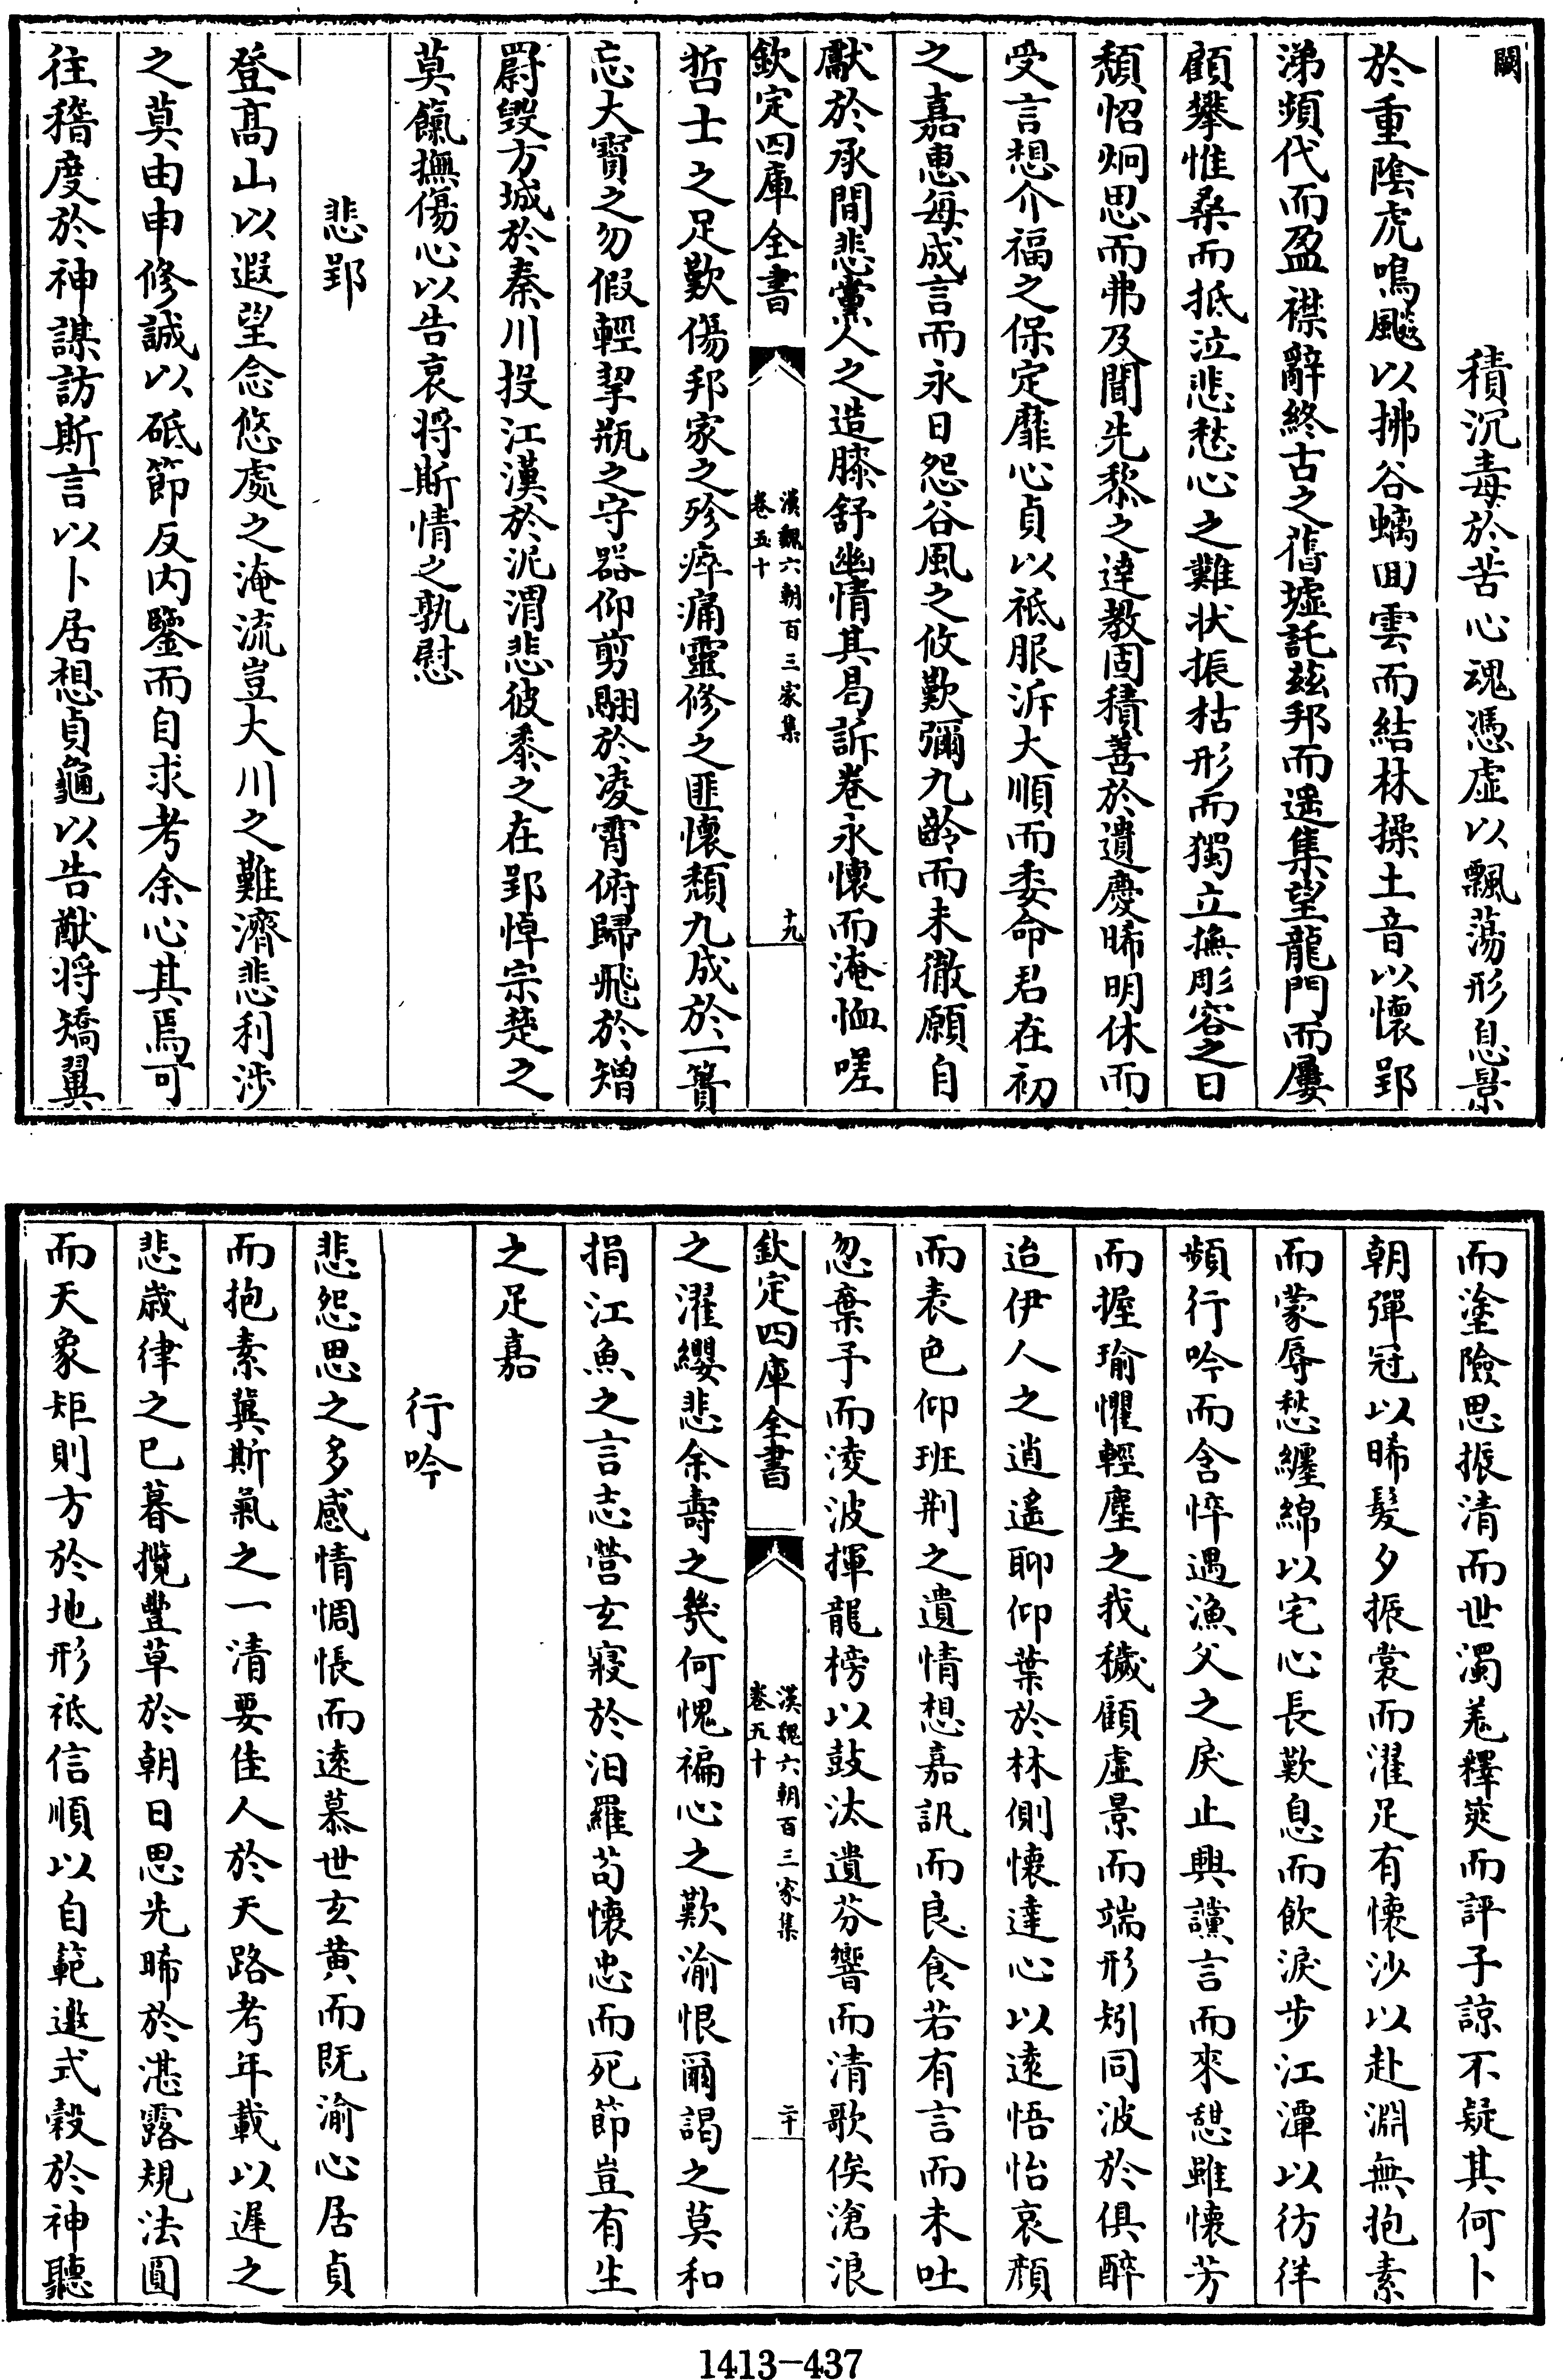 闕　積沉毒於苦心魂憑虛以飄蕩形息景
於重陰虎鳴飈以拂谷螭囬雲而結林操土音以懷郢
涕頻代而盈襟辭終古之舊墟託茲邦而遥集望龍門而屢
顧攀惟桑而抵泣悲愁心之難状振枯形而獨立撫彫容之日
頽怊炯思而弗及聞先黎之達教固積善於遺慶晞明休而
受言想介福之保定靡心貞以祗服泝大順而委命君在初
之嘉惠每成言而永日怨谷風之攸歎彌九齡而未徹願自
獻於承間悲黨人之造膝舒幽情其曷訴卷永懷而淹恤嗟
欽定四庫全書
漢魏六朝百三家集
卷五十
十九
哲士之足歎傷邦家之殄瘁痛靈修之匪懷頽九成於一簣
忘大寳之勿假輕挈瓶之守器仰剪翮於凌霄俯歸飛於矰
罻毁方城於秦川投江漢於泥渭悲彼黍之在郢悼宗楚之
莫餼撫傷心以告哀将斯情之孰慰
悲郢
登髙山以遐望念悠處之淹流豈大川之難濟悲利涉
之莫由申修誠以砥節反内鑒而自求考余心其焉可
往稽度於神謀訪斯言以卜居想貞龜以告猷将矯翼
而塗險思振清而世濁羗釋筴而評子諒不疑其何卜
朝彈冠以晞髮夕振裳而濯足有懷沙以赴淵無抱素
而蒙辱愁纏綿以宅心長歎息而飲淚步江潭以彷徉
頻行吟而含悴遇漁父之戾止興讜言而來憇雖懷芳
而握瑜懼輕塵之我穢顧虛景而端形矧同波於俱醉
迨伊人之逍遥聊仰葉於林側懷達心以遠悟怡哀顔
而表色仰班荆之遺情想嘉訊而良食若有言而未吐
忽棄予而淩波揮龍榜以鼓汰遺芬響而清歌俟滄浪
欽定四庫全書
漢魏六朝百三家集
卷五十
二十
之濯纓悲余壽之幾何愧褊心之歎渝恨爾謁之莫和
捐江魚之言志營玄寢於汨羅苟懷忠而死節豈有生
之足嘉
行吟
悲怨思之多感情惆悵而遠慕世玄黄而既渝心居貞
而抱素冀斯氣之一清要佳人於天路考年載以遲之
悲歲律之已暮攬豐草於朝日思先晞於湛露規法圓
而天象矩則方於地形祗信順以自範邀式穀於神聽
1413-437